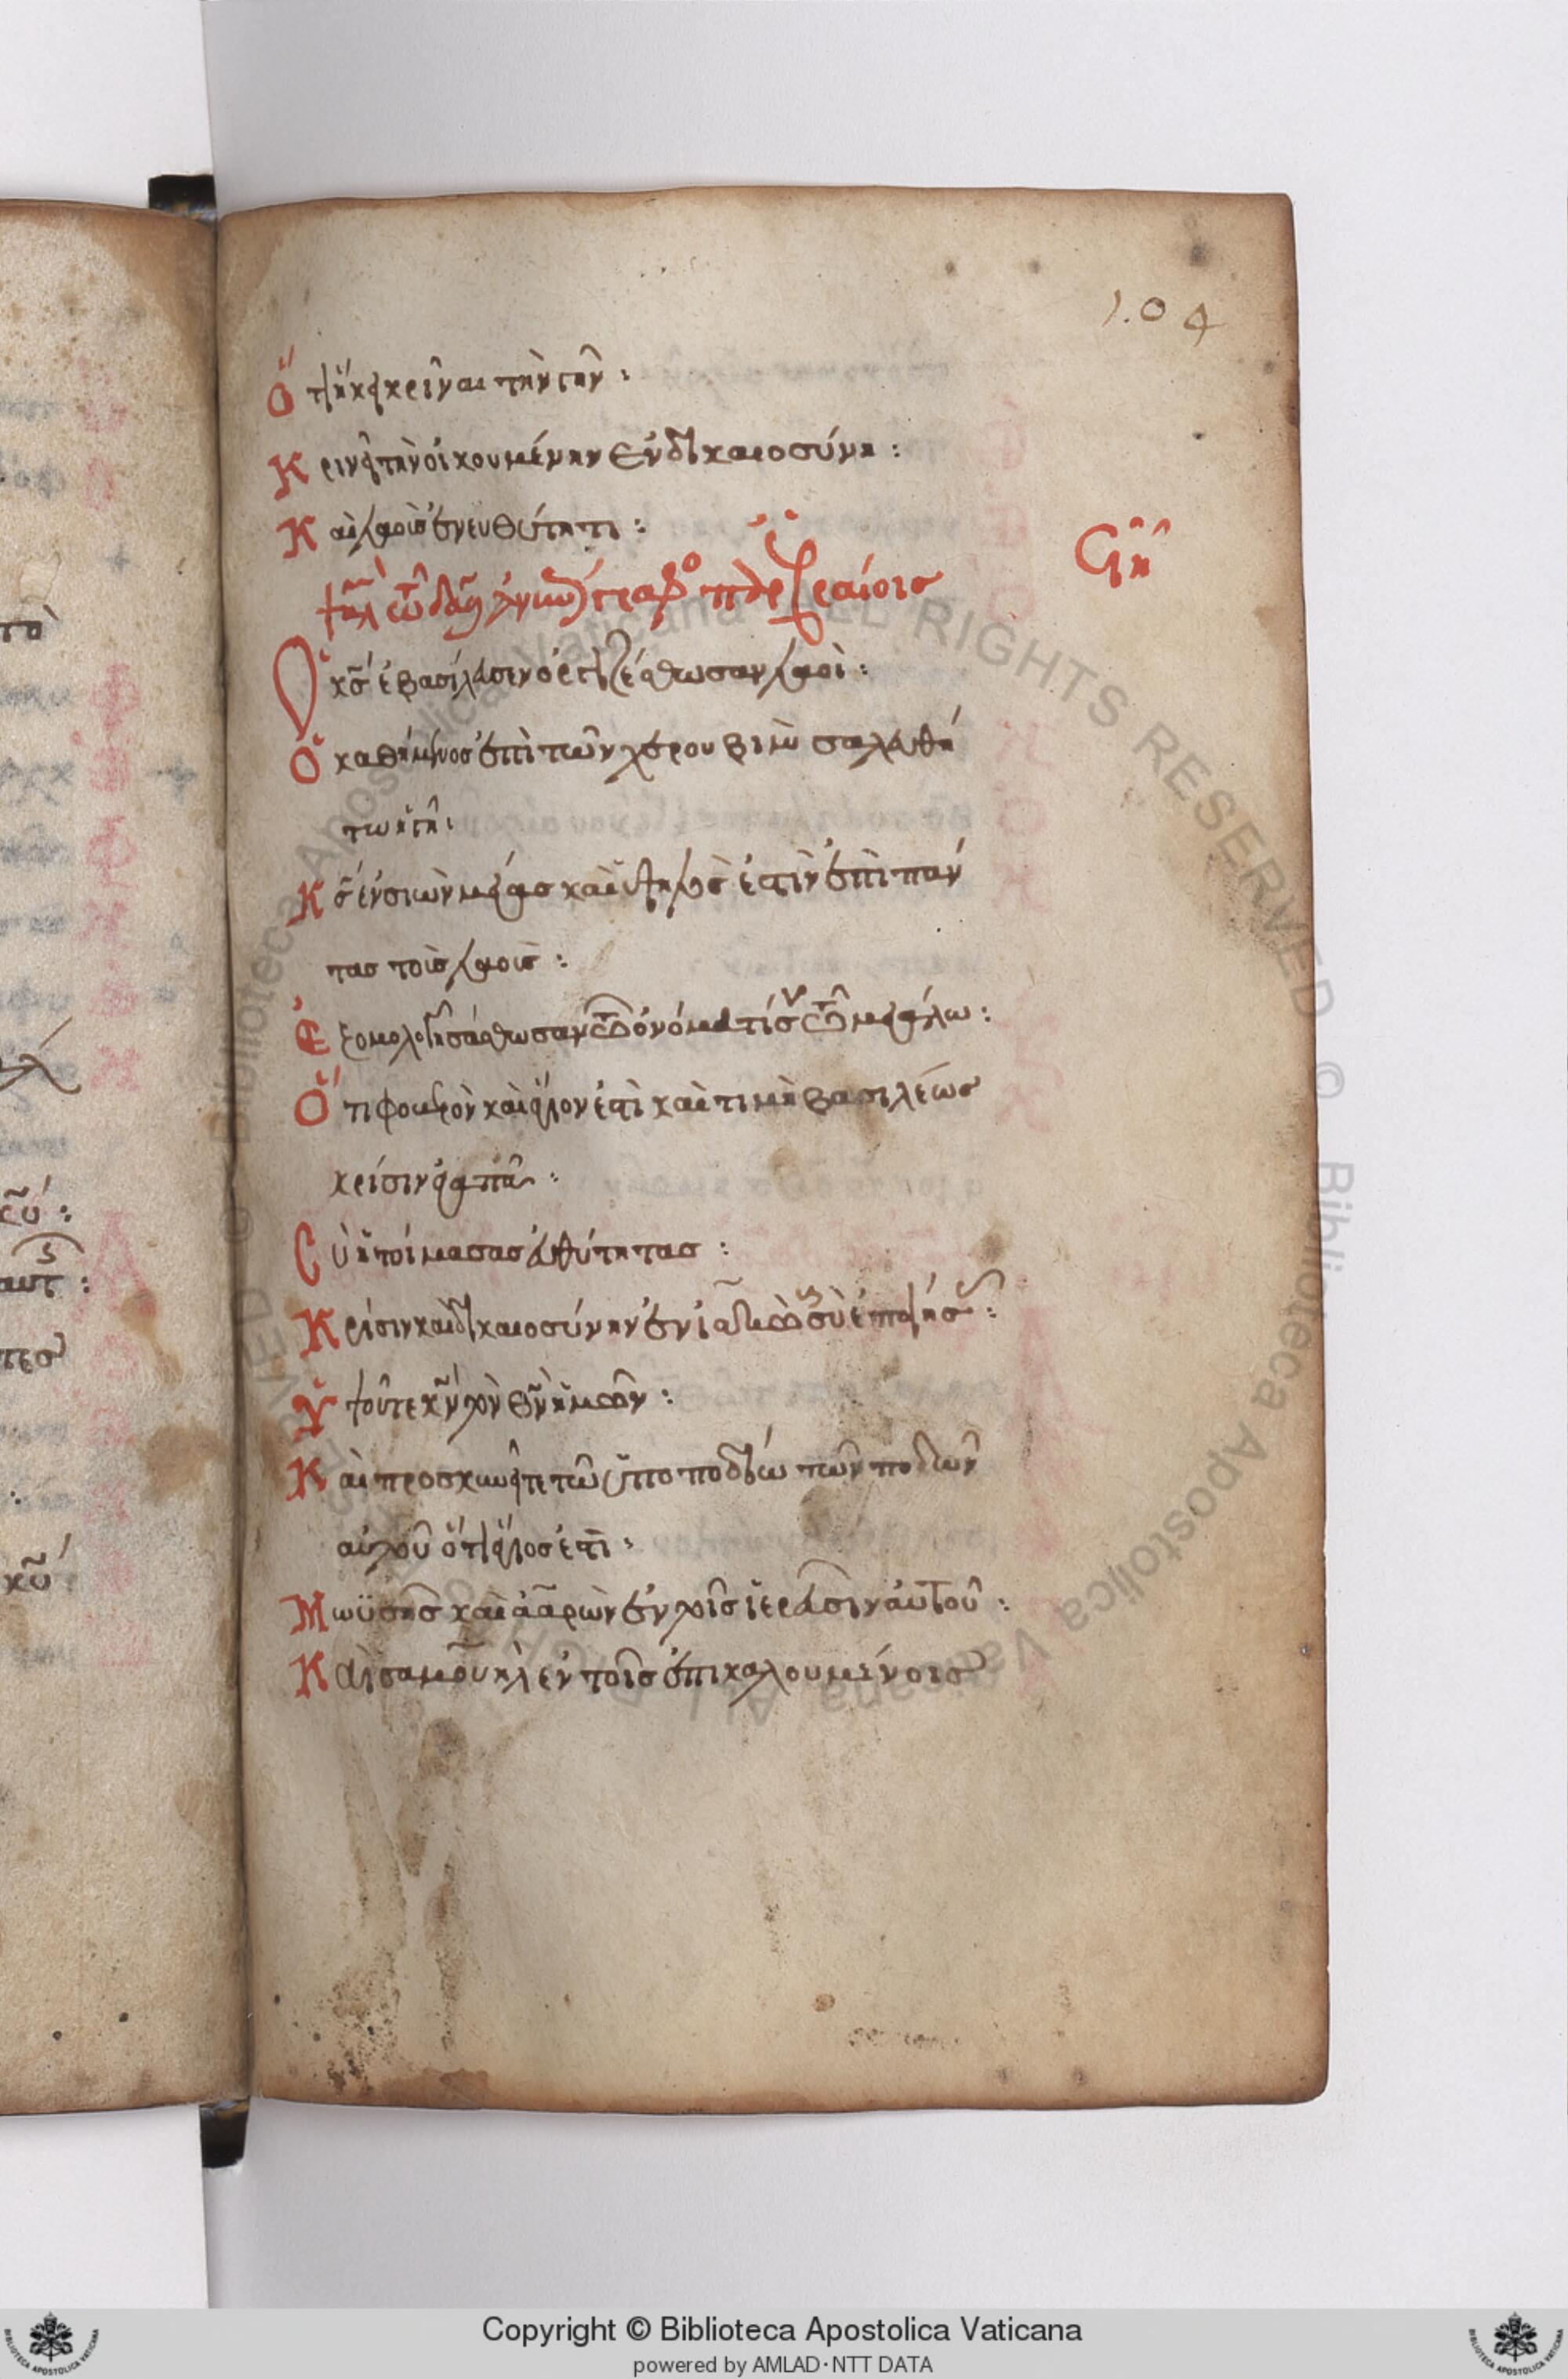 104
Ὅτι ἥκει κρῖναι τὴν γῆν :
Κρινεῖ τὴν οἰκουμένην ἐν δικαιοσύνη :
Καὶ λαοὺς ἐν εὐθύτητι :
ϟη
ψαλ τῶ δαδ ἀνεπίγραφο παρ ἑβραίοις
Ὁ κς ἐβασίλευσεν ὀργιζέσθωσαν λαοὶ :
Ὁ καθήμενος ἐπὶ τῶν χερουβιμ σαλευθή
τω ἡ γῆ :
Κς ἐν σιὼν μέγας καὶ ὑψηλός ἐστιν ἐπὶ πάν
τας τοὺς λαούς :
Ἐξομολογησάσθωσαν τῶ ὀνόματί σου τῶ μεγάλω :
Ὅτι φοβερὸν καὶ ἅγιον ἐστὶ καὶ τιμὴ βασιλέως
κρίσιν ἀγαπᾶ :
Σὺ ἡτοίμασας εὐθύτητας :
Κρίσιν καὶ δικαιοσύνην ἐν ἰακὼβ σὺ ἐποίησας :
Ὑψοῦτε κν τὸν θν ἡμῶν :
Καὶ προσκυνεῖτε τῶ ὑποποδίω τῶν ποδῶν
αὐτοῦ ὅτι ἅγιος ἐστὶ :
Μωϋσῆς καὶ ἀαρὼν ἐν τοῖς ἱερεῦσιν αὐτοῦ :
Καὶ σαμουὴλ ἐν τοῖς ἐπικαλουμένοις
Copyright © Biblioteca Apostolica Vaticana
powered by AMLAD·NTT DATA